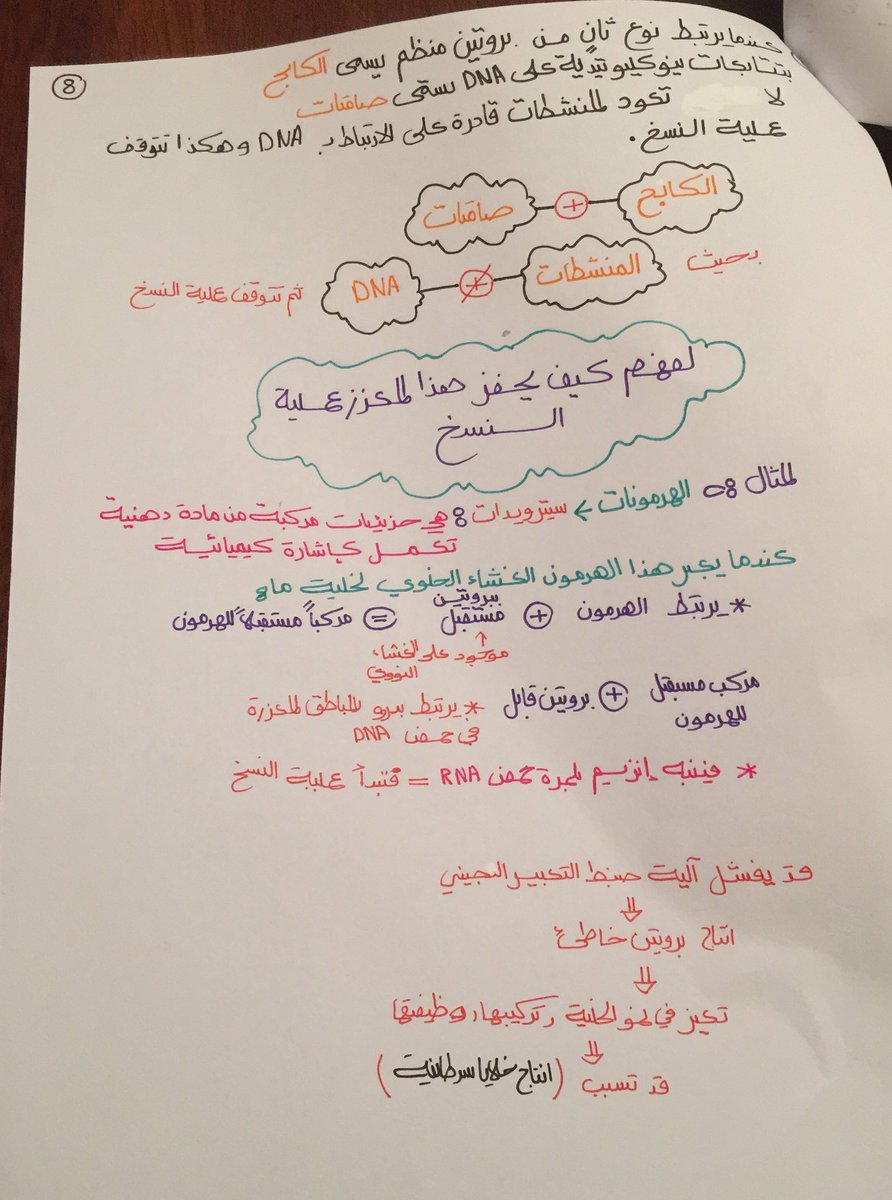 8
عندما يرتبط نوع ثانٍ من بروتين منظم يسمى الكابح
بتتابعات نيوكليوتيدية على DNA يسمى صامتات
لا تعود المنشطات قادرة على الارتباط بـ DNA وهكذا تتوقف
عملية النسخ.
الكابح + صامتات
بحيث المنشطات + DNA ثم تتوقف عملية النسخ
لفهم كيف يحفز هذا المعزز عملية
النسخ
المثال: الهرمونات > ستيرويدات: هي جزيئات مركبة من مادة دهنية
تعمل كإشارة كيميائية
عندما يعبر هذا الهرمون الغشاء الخلوي لخلية ما:
* يرتبط الهرمون + ببروتين مستقبل = مركباً مستقبلاً للهرمون
موجود على الغشاء
النووي
مركب مستقبل للهرمون + بروتين قابل * يرتبط بـ المناطق المعززة
في حمض DNA
* فينبه إنزيم بلمرة حمض RNA = فتبدأ عملية النسخ
قد يفشل آلية ضبط التعبير الجيني
⇓
انتاج بروتين خاطئ
⇓
تغير في نمو الخلية وتركيبها، وظيفتها
⇓
قد تسبب (انتاج خلايا سرطانية)